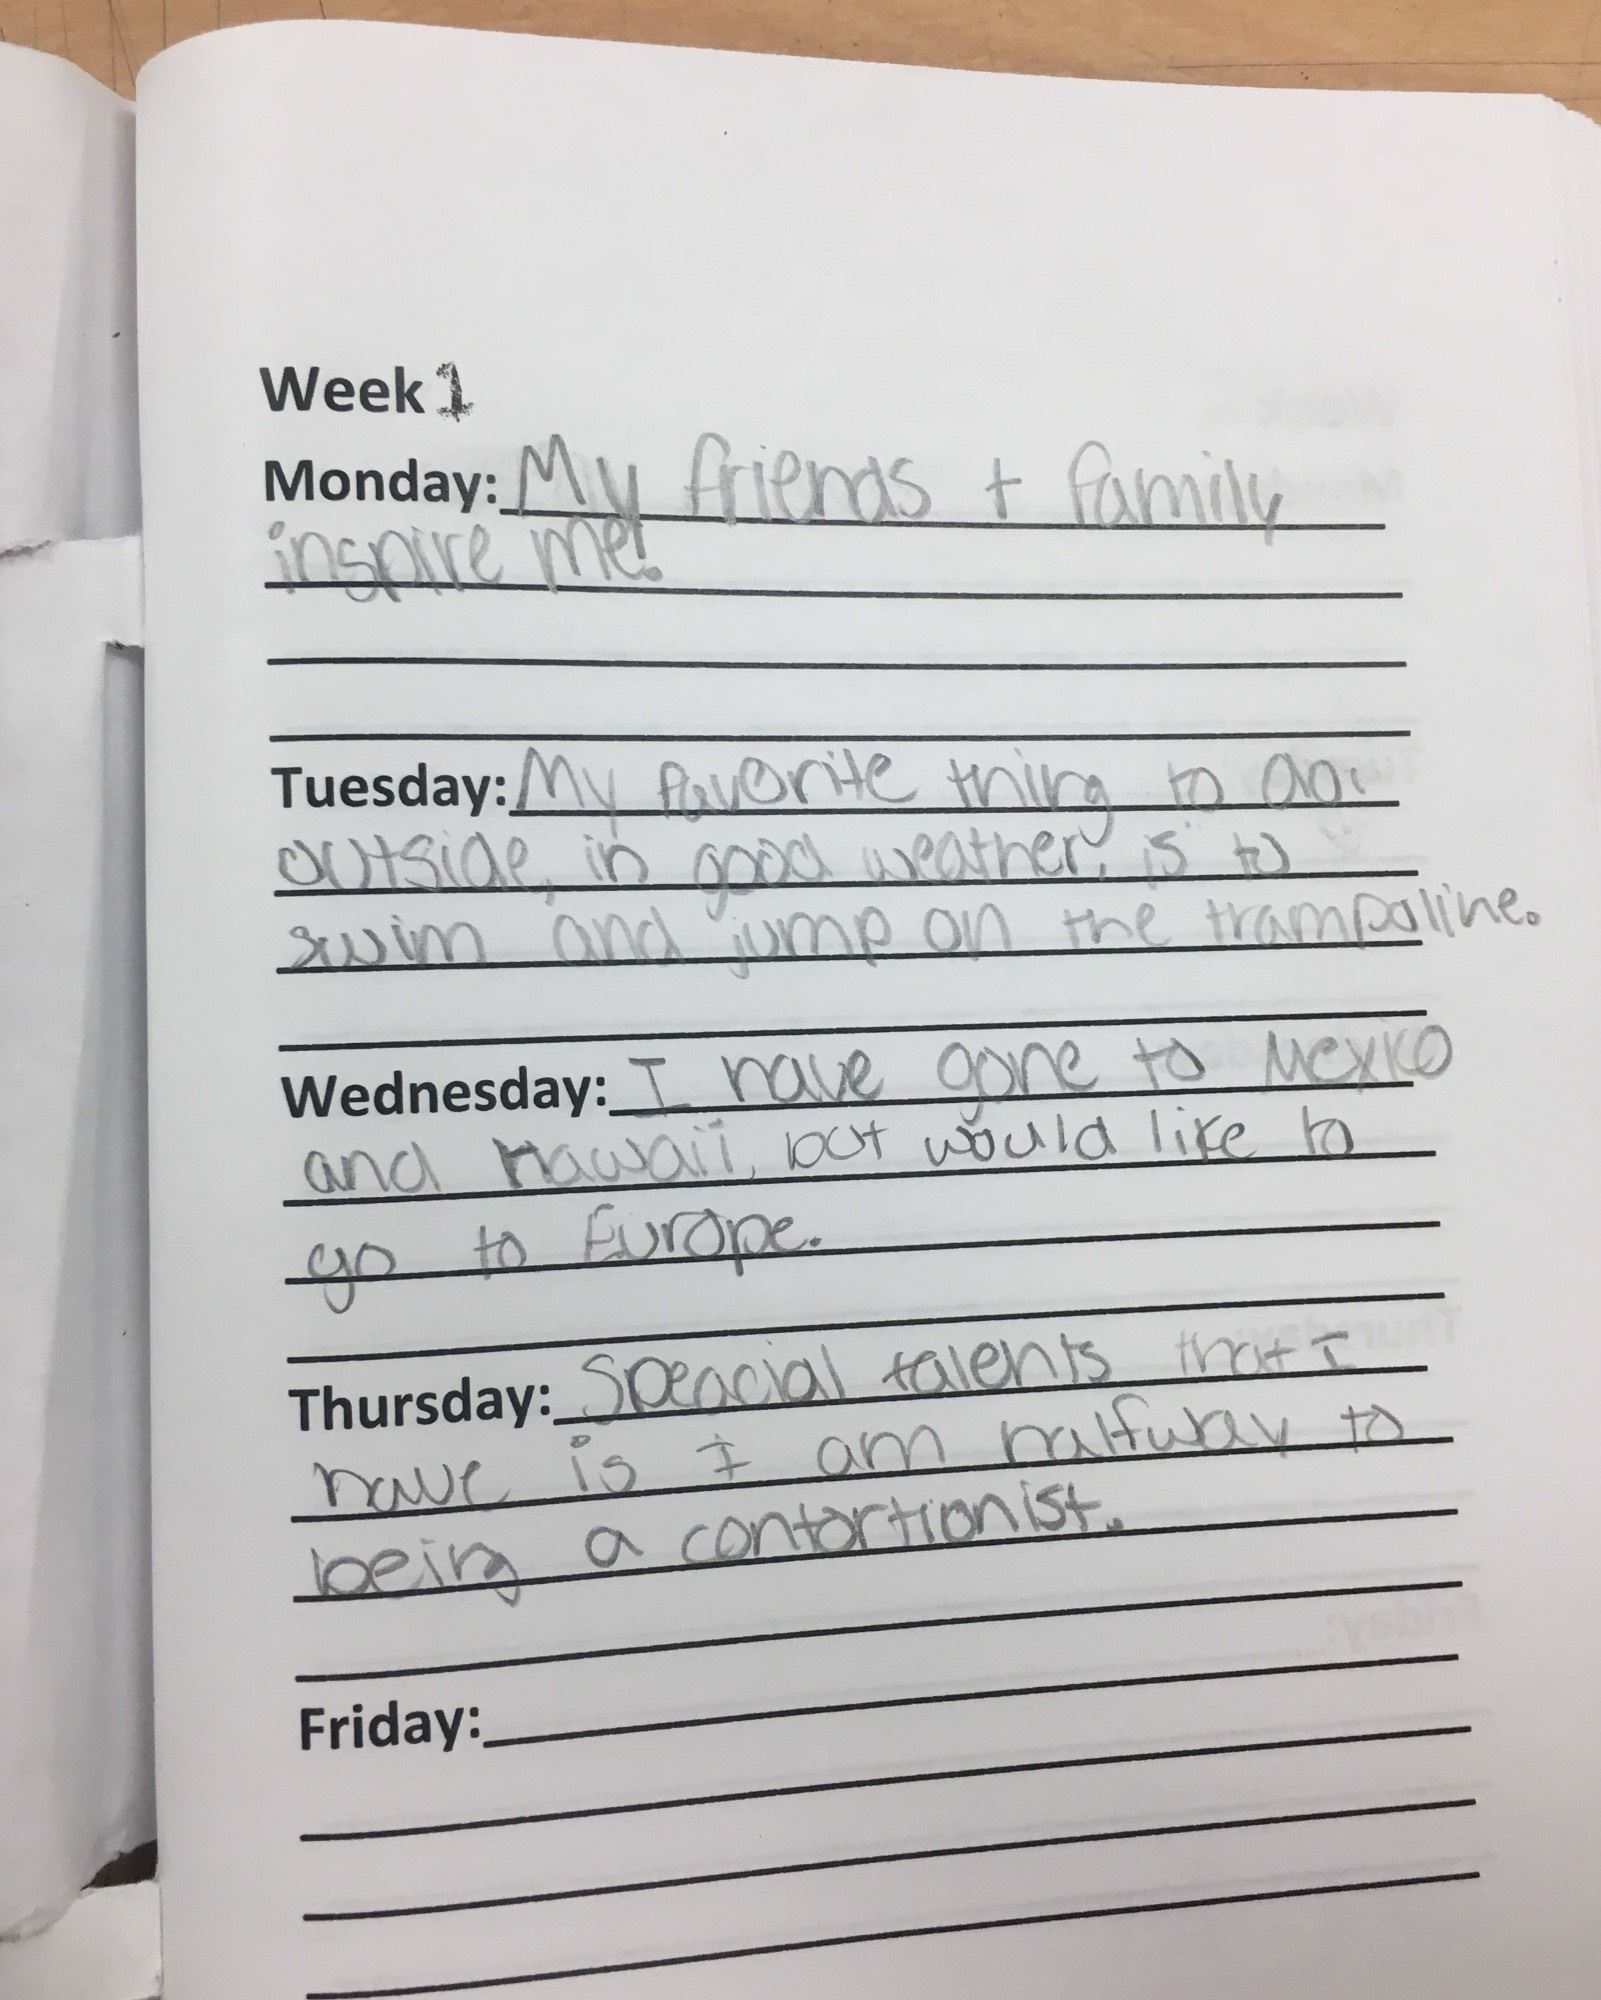 Week 1
Monday: My friends + family
inspire me!
Tuesday: My favorite thing to do
outside, in good weather, is to
swim and jump on the trampoline.
Wednesday: I have gone to Mexico
and Hawaii, but would like to
go to Europe.
Thursday: Speacial talents that I
have is I am halfway to
being a contortionist.
Friday: